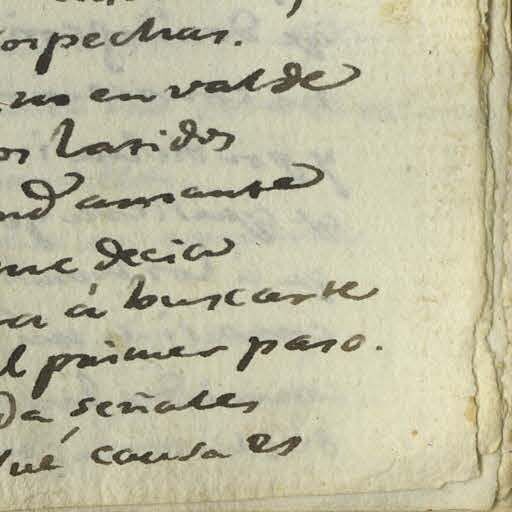 sospechas.
no en valde
os latidos
nd.º amante
me decia
a á buscarte
el primer paso.
Da señales
Qué causa es